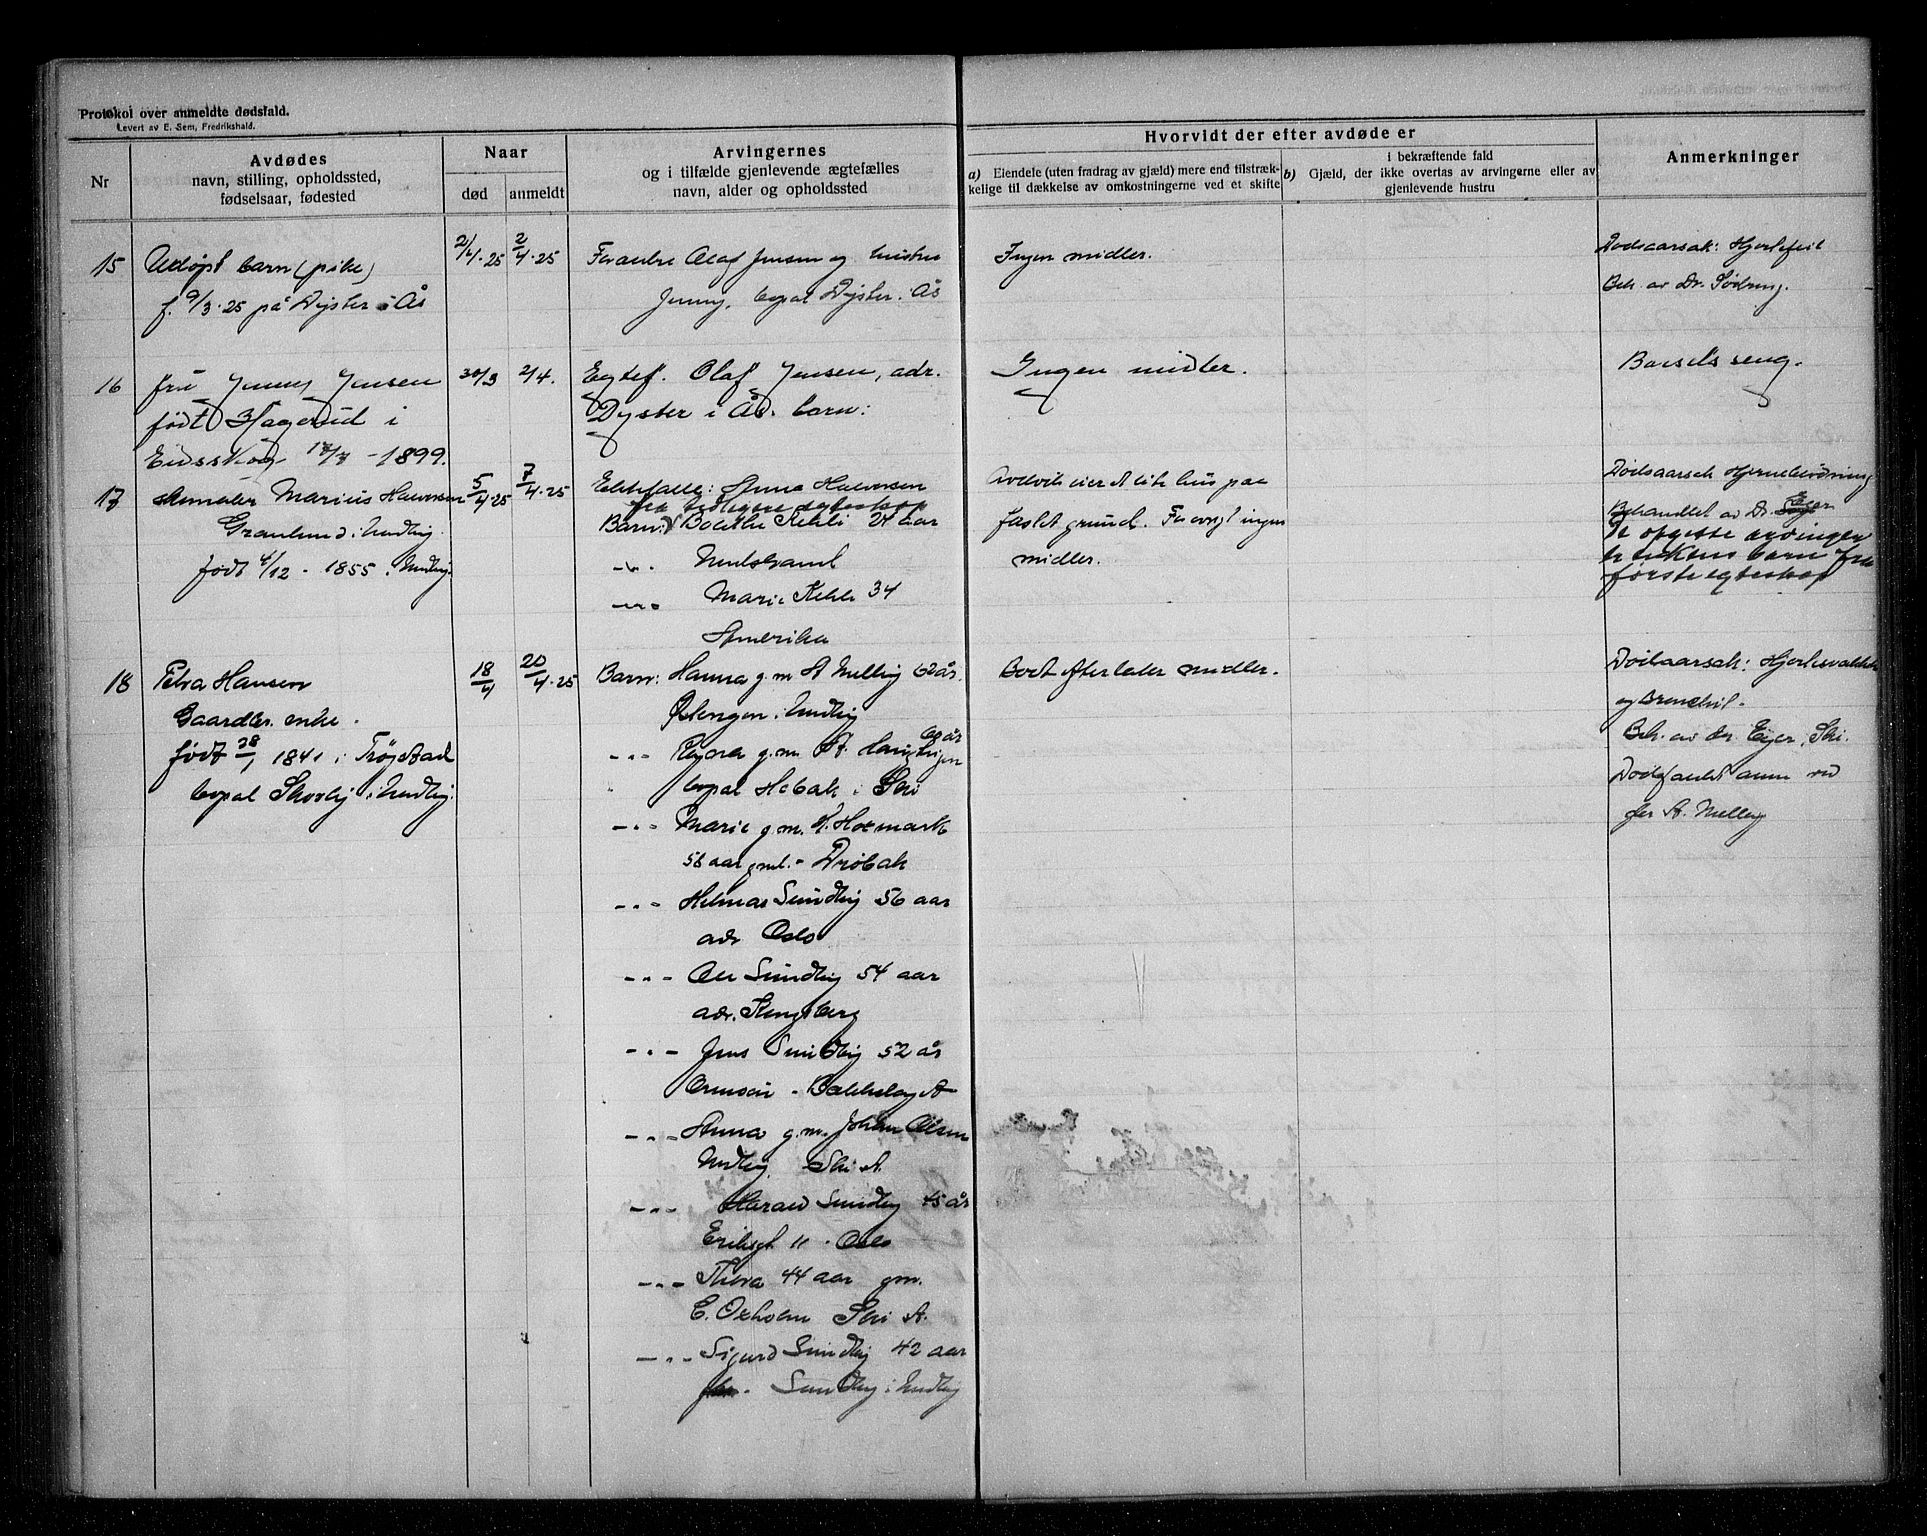 Protokol over anmeldte dødsfald.
Levert av E. Sem, Fredrikshald.
Nr
Avdødes
navn, stilling, opholdssted,
fødselsaar, fødested
Naar
død
anmeldt
Arvingernes
og i tilfælde gjenlevende ægtefælles
navn, alder og opholdssted
Hvorvidt der efter avdøde er
a) Eiendele (uten fradrag av gjæld) mere end tilstræk-
kelige til dækkelse av omkostningerne ved et skifte
i bekræftende fald
b) Gjæld, der ikke overtas av arvingerne eller av
gjenlevende hustru
Anmerkninger
15
Udøpt barn (pike)
f. 9/3-25 på Dyster i Ås
2/4-25
2/4-25
Forældre Olaf Jensen og hustru
Jenny, bopæl Dyster i Ås
Ingen midler.
Dødsaarsak: Hjertefeil
Beh. av Dr. Sødring.
16
Fru Jenny Jensen
født Hagerud i
Eidsskog 17/7 - 1899.
30/3
2/4.
Egtef. Olaf Jensen, adr.
Dyster i Ås. barn:
Ingen midler.
Barselseng.
17
Marius Halvorsen
Granlund i
født 4/12 - 1855 i
5/4-25
7/4-25
Ektefælle: Anna Halvorsen
fra tidligere egteskap
Barn: 21 aar
-"-
-"- Marie 34
Amerika
Avdøde eier et lite hus paa
fæstet grund. Forøvrigt ingen
midler.
Dødsaarsak Hjerneblødning
Behandlet av Dr. Eger
De opgitte arvinger
er enkens barn fra
første egteskap
18
Petra Hansen
Gaardbr. enke.
født 28/1 1841 i Trøgstad
bopæl Skovby i
18/4
20/4-25
Barn: Hanna g.m. A Melleby 62 år.
-"- g.m. 60 år
bopæl Hebæk i Ski
-"- Marie g.m. H. Holmark
58 aar gml. - Drøbak
-"- Helmar Sundby 56 aar
adr Oslo
-"- Ole Sundby 54 aar
adr. Kongsberg
-"- Jens Sundby 52 år
Ormøen - Bækkelaget
-"- Anna g.m. Johan Olsen
Ski St.
-"- Harald Sundby 45 år
Eriksgt 11 - Oslo
-"- Thora 44 aar gm.
C. Oxholm Ski St.
-"- Sigurd Sundby 42 aar
Sundby i
Boet efterlater midler.
Dødsaarsak: Hjertesvakhet
og Bronchit.
Beh. av dr. Eger, Ski.
Dødsfaldet anm ved
A. Melleby